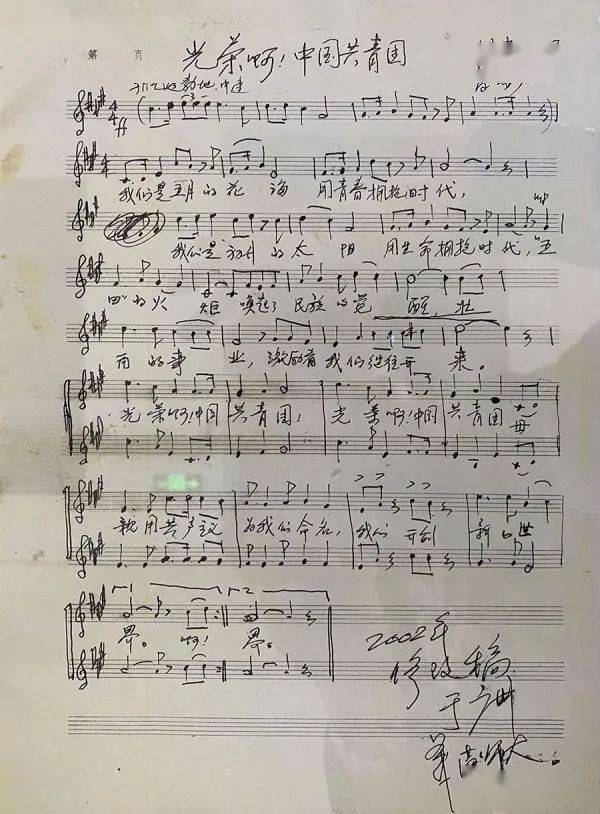 第 页
光荣啊!中国共青团
4 4 ff
我们是五月的花海 用青春拥抱时代,
我们是初升的太阳 用生命拥抱时代,"五
四"的火炬 唤起了民族的觉醒,壮
丽的事业,激励着我们继往开来。
光荣啊!中国共青团! 光荣啊!中国共青团 母
亲用共产主义为我们命名,我们开创新的世
1 2
界。啊! 界。
2002年
修改稿
于广州
华南师大。